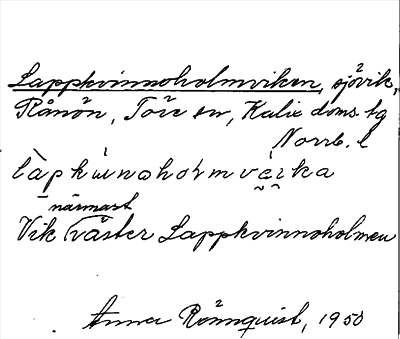 Lappkvinnoholmviken, sjövik,
Rånön, Töre sn, Kalix doms. tg
Norrb. l
làpkẁnahoḷmvä̀ịka
närmast
Vik väster Lappkvinnoholmen
Anna Rönnquist, 1950